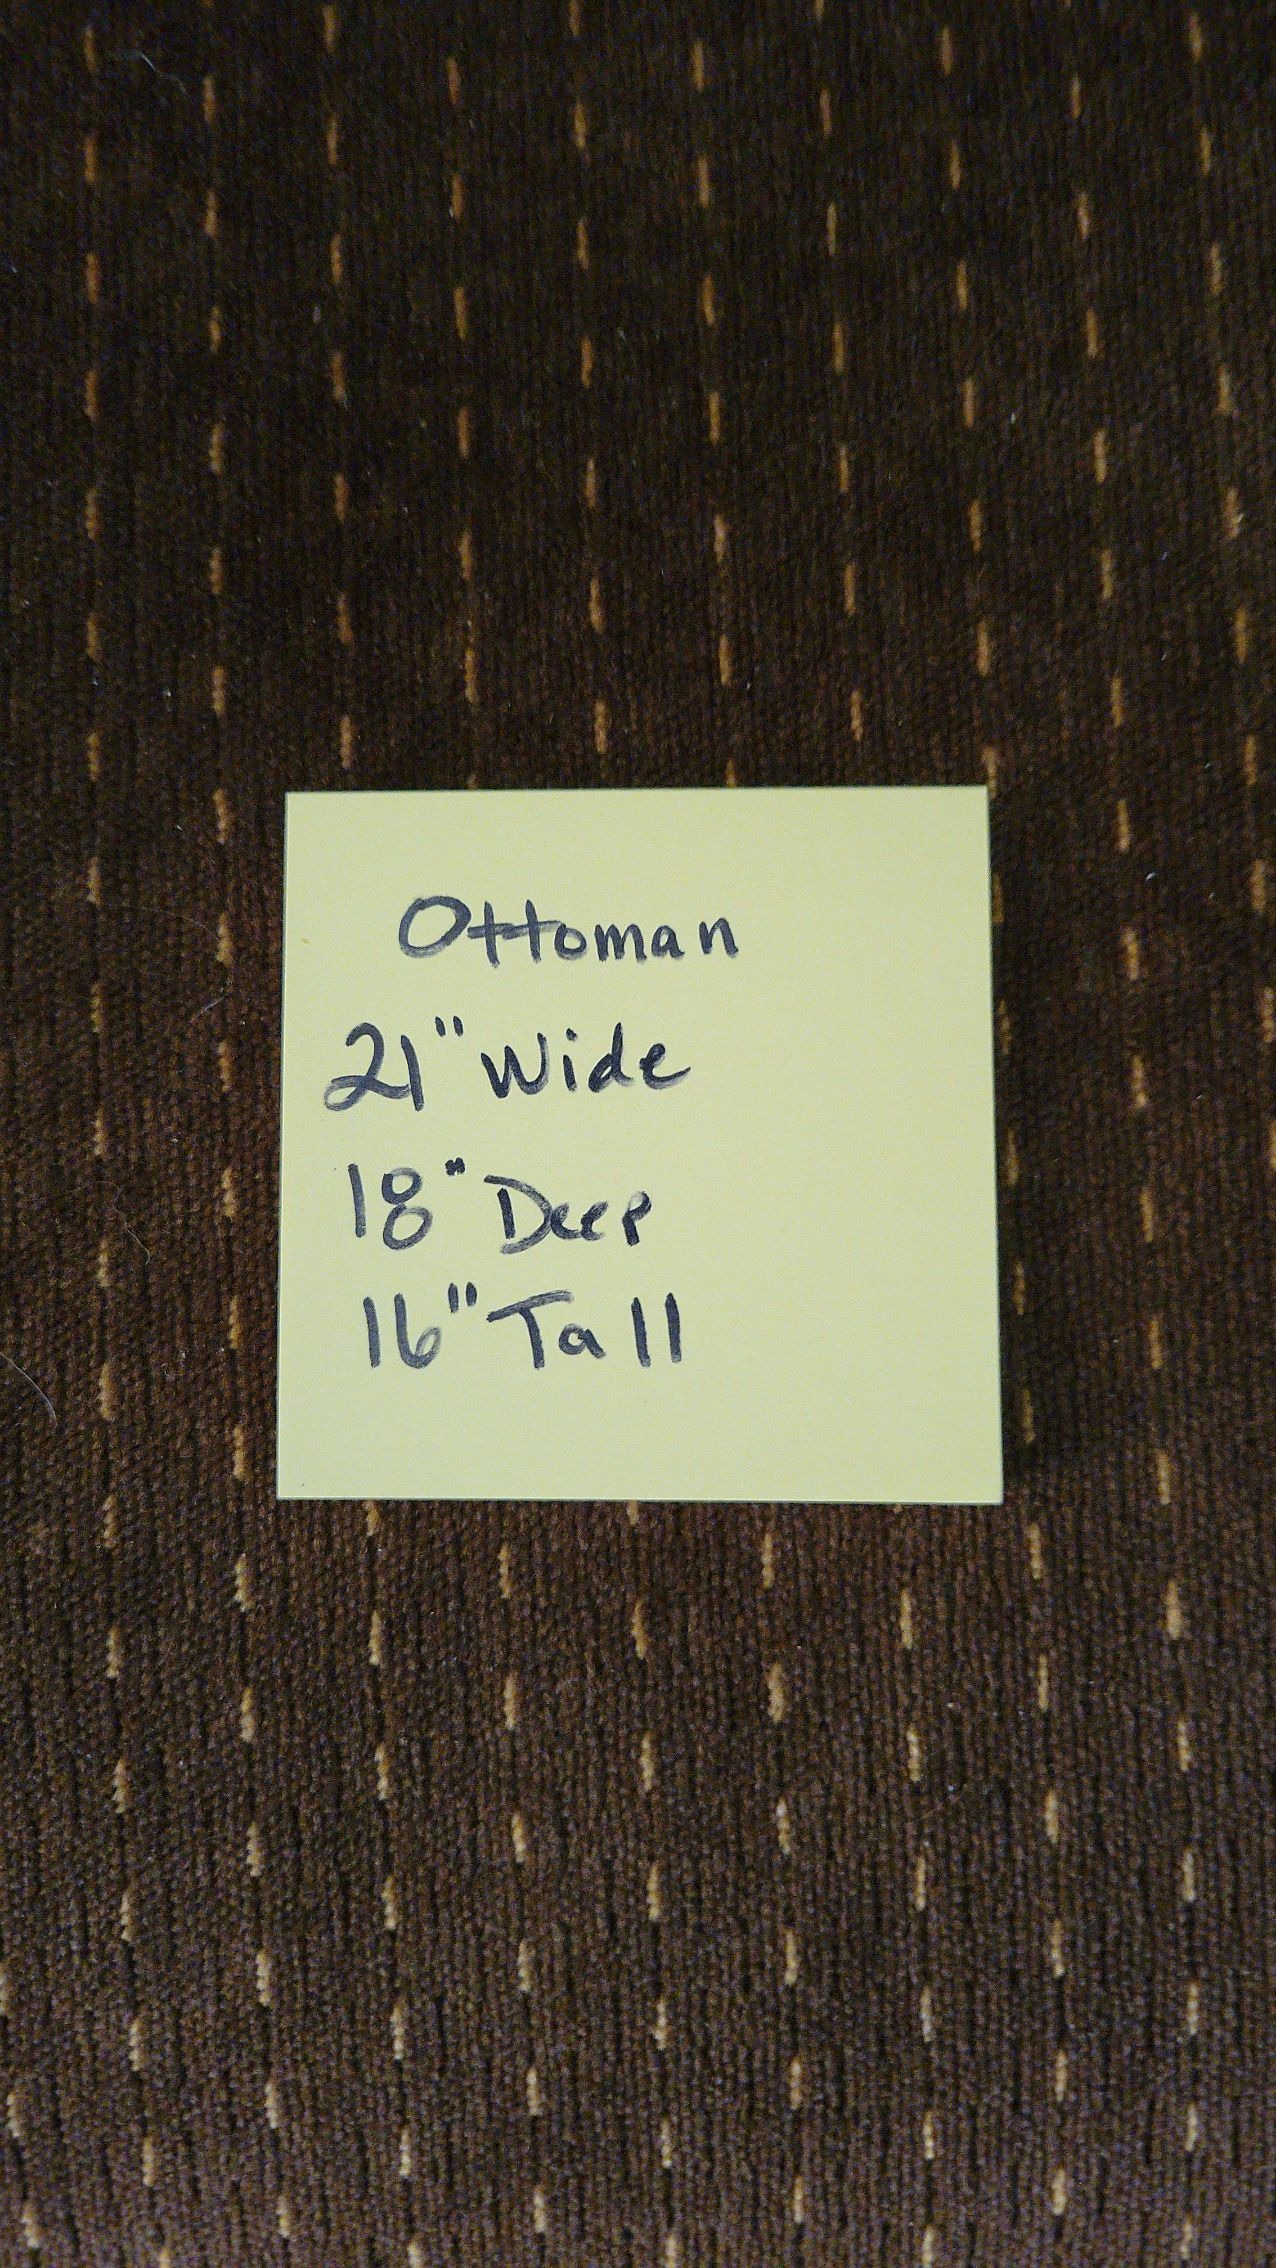 Ottoman
21" Wide
18" Deep
16" Tall